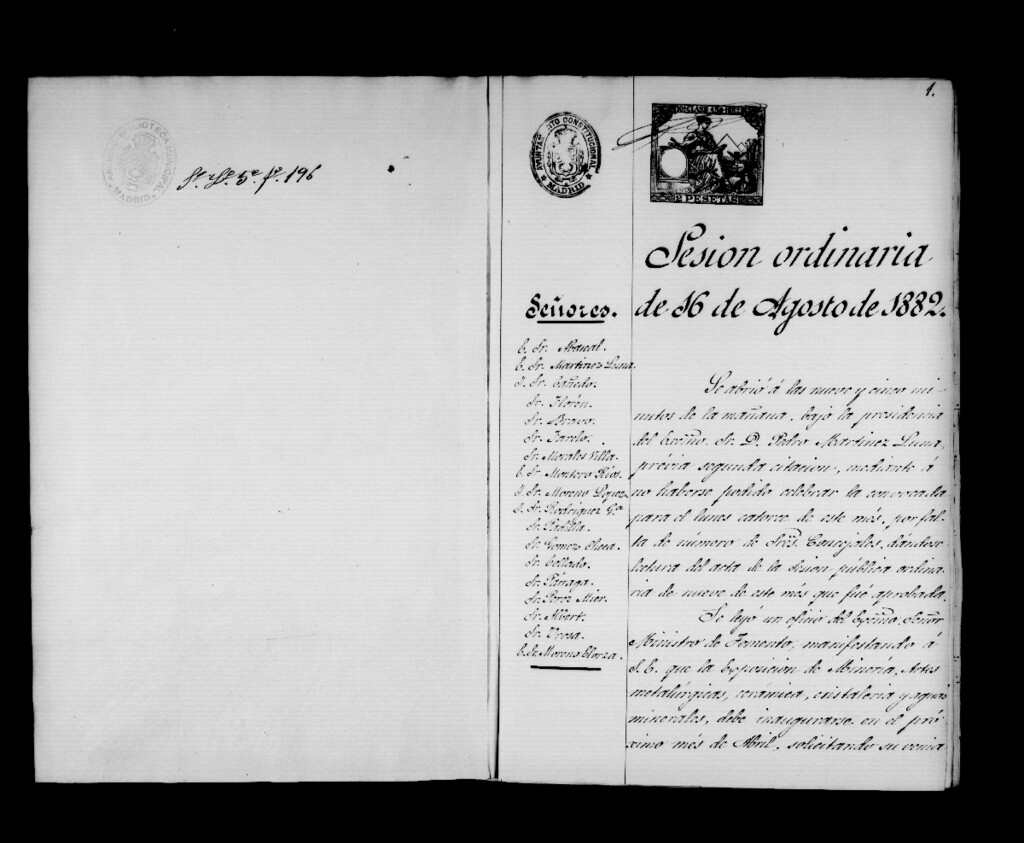 BIBLIOTECA MUNICIPAL
MADRID
5ª fº 196
1.
AYUNTAMIENTO CONSTITUCIONAL
MADRID
2 PESETAS
Sesion ordinaria
de 16 de Agosto de 1882.
Señores.
E. Sr. Abascal.
E. Sr. Martinez Luna.
I. Sr. Cañedo.
Sr. Florén.
Sr. Bravo.
Sr. Tarelo.
Sr. Morales Villa.
E. Sr. Montero Rios.
I. Sr. Moreno Lopez.
I. Sr. Rodriguez Gª
Sr. Padilla.
Sr. Gomez
Sr. Collado.
Sr. Párraga.
Sr. Perez Mier.
Sr. Albert.
Sr.
E. Sr. Moreno Elorza.
Se abrió á las nueve y cinco mi-
nutos de la mañana, bajo la presidencia
del Excmo. Sr. D. Pedro Martinez Luna,
prévia segunda citacion, mediante á
no haberse podido celebrar la convocada
para el lunes catorce de este més, por fal-
ta de número de Sres. Concejales, dándose
lectura del acta de la sesion pública ordina-
ria de nueve de este més que fué aprobada.
Se leyó un oficio del Excmo. Señor
Ministro de Fomento, manifestando á
S.E. que la Exposicion de Minería, Artes
metalúrgicas, cerámica, cristaleria y aguas
minerales, debe inaugurarse en el pró-
ximo més de Abril, solicitando su venia